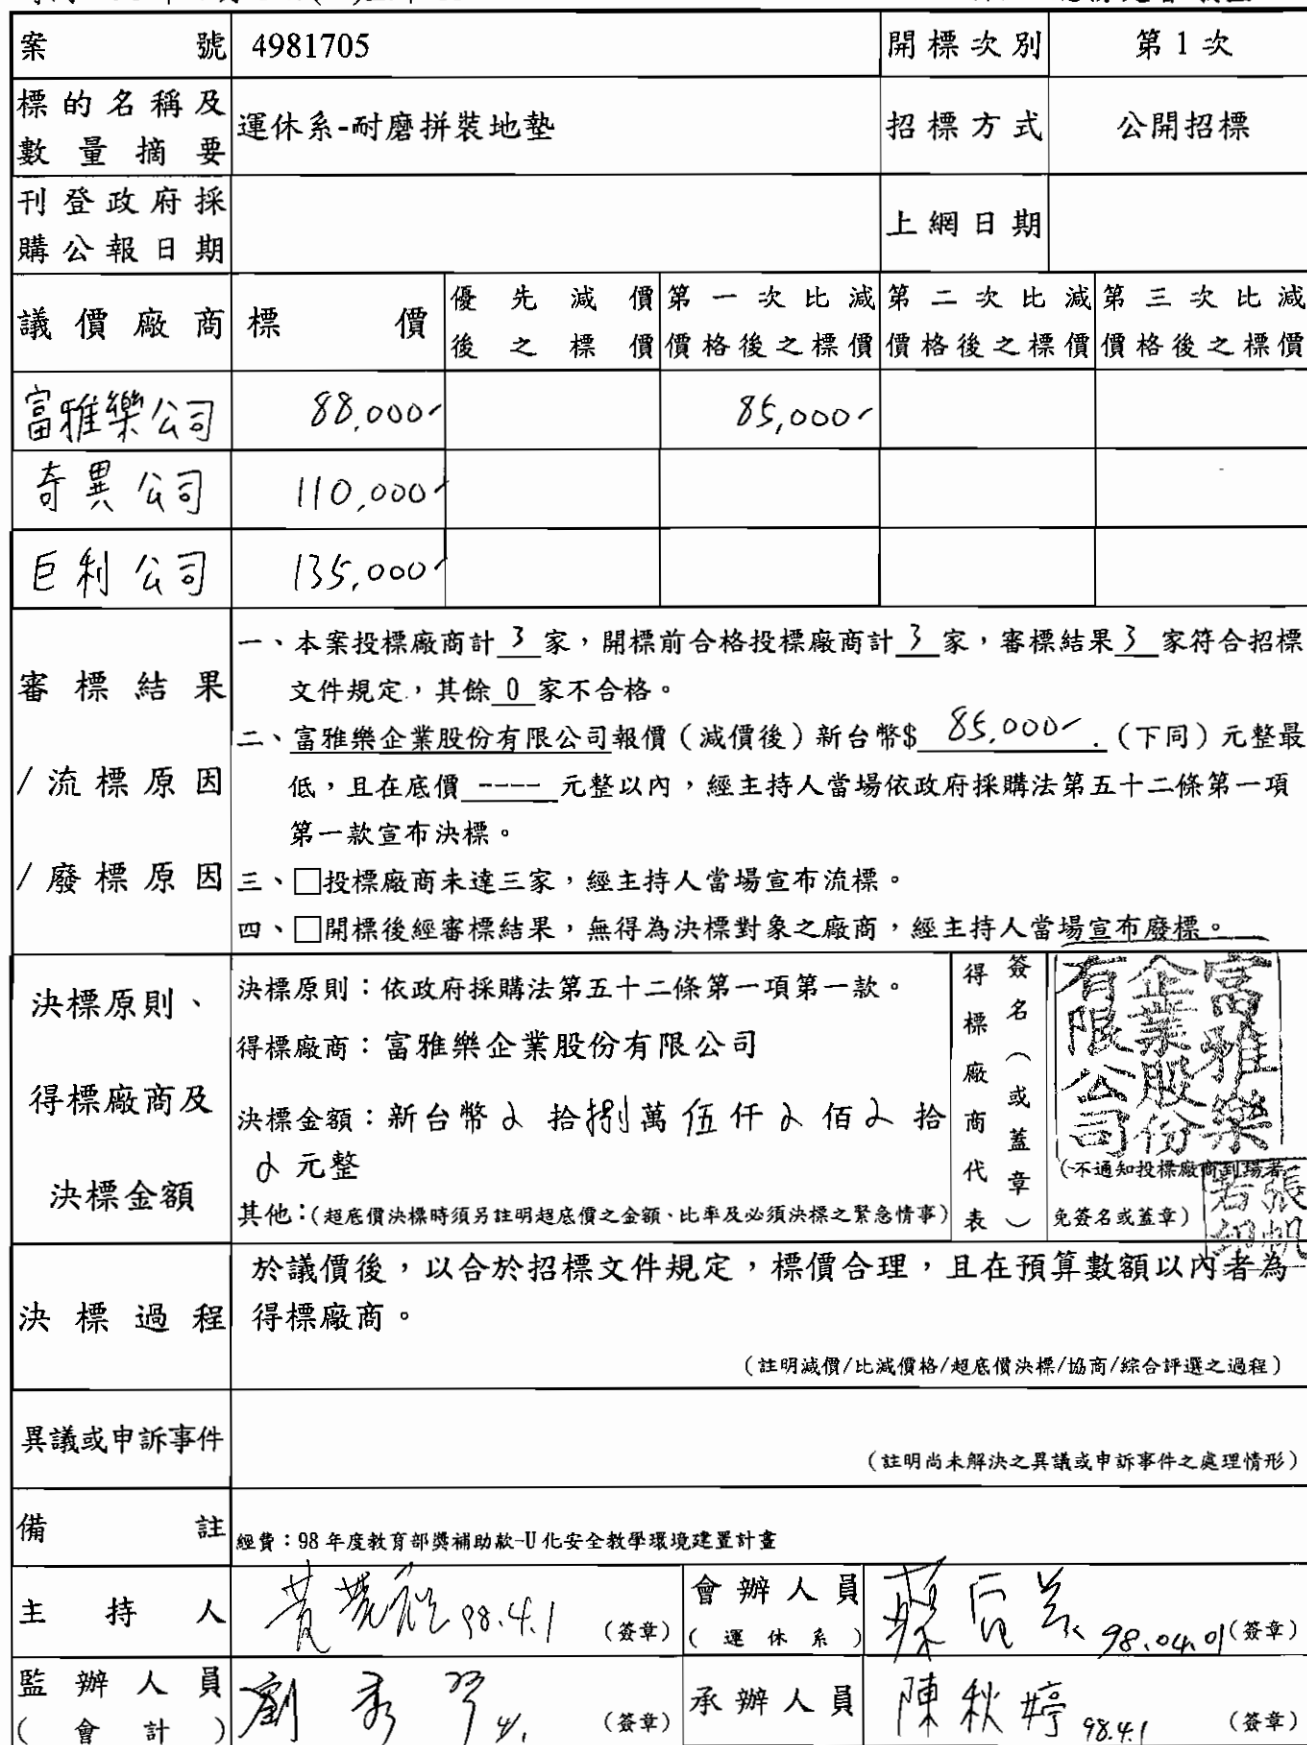 案號 4981705 開標次別 第1次
標的名稱及數量摘要 運休系-耐磨拼裝地墊 招標方式 公開招標
刊登政府採購公報日期 上網日期
議價廠商 標價 優先減價後之標價 第一次比減價格後之標價 第二次比減價格後之標價 第三次比減價格後之標價
富雅樂公司 88,000- 85,000-
奇異公司 110,000-
巨利公司 135,000-
審標結果
/流標原因
/廢標原因
一、本案投標廠商計 3 家，開標前合格投標廠商計 3 家，審標結果 3 家符合招標
文件規定，其餘 0 家不合格。
二、富雅樂企業股份有限公司報價（減價後）新台幣$ 85,000- .（下同）元整最
低，且在底價 ---- 元整以內，經主持人當場依政府採購法第五十二條第一項
第一款宣布決標。
三、□投標廠商未達三家，經主持人當場宣布流標。
四、□開標後經審標結果，無得為決標對象之廠商，經主持人當場宣布廢標。
決標原則、
得標廠商及
決標金額
決標原則：依政府採購法第五十二條第一項第一款。
得標廠商：富雅樂企業股份有限公司
決標金額：新台幣 拾捌萬伍仟 佰 拾
元整
其他：（超底價決標時須另註明超底價之金額、比率及必須決標之緊急情事）
得標廠商代表
簽名（或蓋章）
富雅樂
企業股份
有限公司
（不通知投標廠商到場者
免簽名或蓋章）
決標過程
於議價後，以合於招標文件規定，標價合理，且在預算數額以內者為
得標廠商。
（註明減價/比減價格/超底價決標/協商/綜合評選之過程）
異議或申訴事件
（註明尚未解決之異議或申訴事件之處理情形）
備註 經費：98年度教育部獎補助款-U化安全教學環境建置計畫
主持人 98.4.1 （簽章） 會辦人員（運休系） 98.04.01 （簽章）
監辦人員（會計） 劉秀 （簽章） 承辦人員 陳秋婷 98.4.1 （簽章）